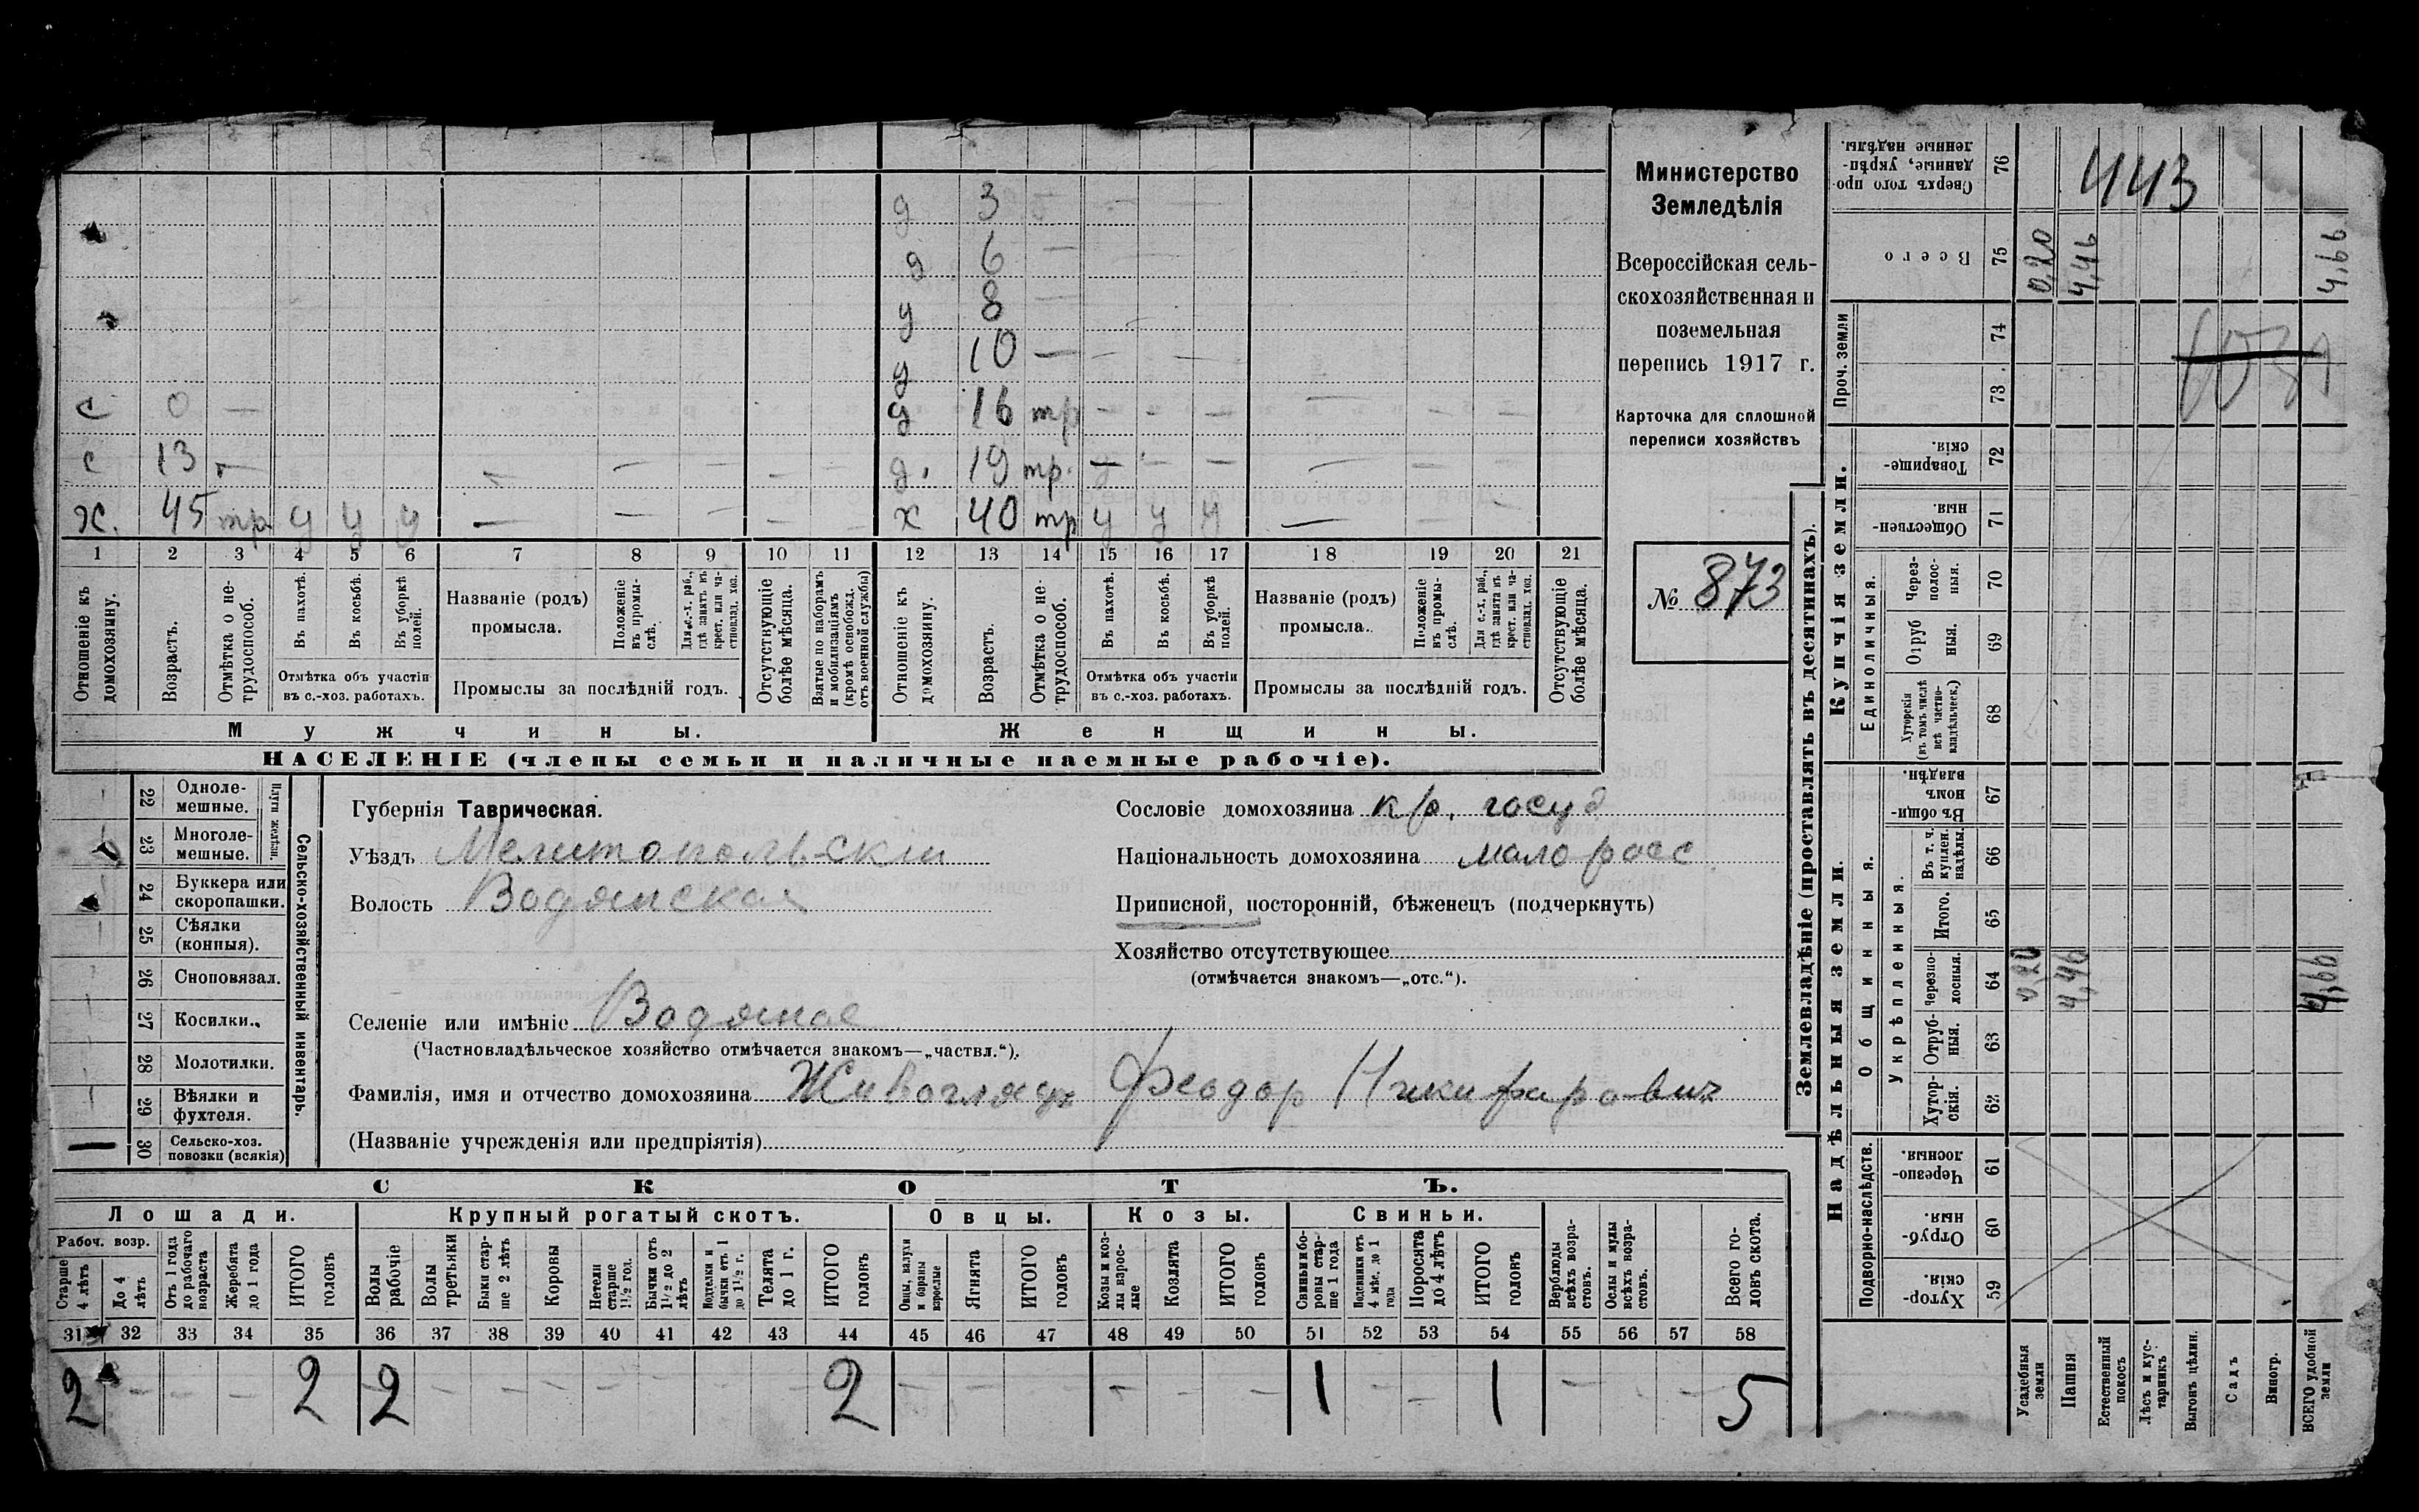 Министерство
Земледѣлія
Всероссійская сель-
скохозяйственная и
поземельная
перепись 1917 г.
Карточка для сплошной
переписи хозяйствъ
№ 873
д 3 —
д 6 —
д 8 —
д 10 — — —
с 0 — д 16 тр — — — — — —
с 13 — — — — — — д. 19 тр. — — — — — —
х. 45 тр у у у — — — — — х 40 тр у у у — — —
1 2 3 4 5 6 7 8 9 10 11 12 13 14 15 16 17 18 19 20 21
Отношеніе къ домохозяину.
Возрастъ.
Отмѣтка о не-трудоспособ.
Въ пахотѣ.
Въ косьбѣ.
Въ уборкѣ полей.
Отмѣтка объ участіи въ с.-хоз. работахъ.
Названіе (родъ) промысла.
Положеніе въ промы-слѣ.
Для с.-х. раб., гдѣ занятъ въ крест. или ча-стновлад. хоз.
Промыслы за послѣдній годъ.
Отсутствующіе болѣе мѣсяца.
Взятые по наборамъ и мобилизаціямъ (кромѣ освобожд. отъ военной службы)
Отношеніе къ домохозяину.
Возрастъ.
Отмѣтка о не-трудоспособ.
Въ пахотѣ.
Въ косьбѣ.
Въ уборкѣ полей.
Отмѣтка объ участіи въ с.-хоз. работахъ.
Названіе (родъ) промысла.
Положеніе въ промы-слѣ.
Для с.-х. раб., гдѣ занята въ крест. или ча-стновлад. хоз.
Промыслы за послѣдній годъ.
Отсутствующіе болѣе мѣсяца.
Мужчины.
Женщины.
НАСЕЛЕНІЕ (члены семьи и наличные наемные рабочіе).
22 Одноле-мешные.
23 Многоле-мешные.
Плуги желѣзн.
24 Буккера или скоропашки.
25 Сѣялки (конныя).
26 Сноповязал.
27 Косилки.
28 Молотилки.
29 Вѣялки и фухтеля.
30 Сельско-хоз. повозки (всякія)
Сельско-хозяйственный инвентарь.
Губернія Таврическая.
Уѣздъ Мелитопольскій
Волость Водянская
Селеніе или имѣніе Водяное
(Частновладѣльческое хозяйство отмѣчается знакомъ—„частвл.“).
Фамилія, имя и отчество домохозяина Живоглядъ Феодор Никифорович
(Названіе учрежденія или предпріятія)
Сословіе домохозяина кр. госуд
Національность домохозяина малоросс
Приписной, посторонній, бѣженецъ (подчеркнуть)
Хозяйство отсутствующее
(отмѣчается знакомъ—„отс.“).
СКОТЪ.
Лошади. Крупный рогатый скотъ. Овцы. Козы. Свиньи.
Рабоч. возр.
Старше 4 лѣтъ
До 4 лѣтъ
Отъ 1 года до рабочаго возраста
Жеребята до 1 года
ИТОГО головъ
Волы рабочіе
Волы третьяки
Быки стар-ше 2 лѣтъ
Коровы
Нетели старше 1½ год.
Бычки отъ 1½ до 2 лѣтъ
Подтелки и бычки отъ 1 до 1½ г.
Телята до 1 г.
ИТОГО головъ
Овцы, валухи и бараны взрослые
Ягнята
ИТОГО головъ
Козы и коз-лы взрос-лые
Козлята
ИТОГО головъ
Свиньи и бо-ровы стар-ше 1 года
Подсвинки отъ 4 мѣс. до 1 года
Поросята до 4 лѣтъ
ИТОГО головъ
Верблюды всѣхъ возра-стовъ.
Ослы и мулы всѣхъ возра-стовъ.
Всего го-ловъ скота.
31 32 33 34 35 36 37 38 39 40 41 42 43 44 45 46 47 48 49 50 51 52 53 54 55 56 57 58
2 — — — 2 2 — — — — — — — 2 — — — — — — 1 — — 1 — — — 5
Землевладѣніе (проставлять въ десятинахъ).
Купчія земли.
Надѣльныя земли.
Сверхъ того про-данные, укрѣп-ленные надѣлы. 76 443
Всего 75 0,20 4,46 4,66
Проч. земли 74
73
Товарище-скія. 72
Обществен-ныя. 71
Единоличныя.
Через-полос-ныя. 70
Отруб ныя. 69
Хуторскія (въ томъ числѣ всѣ частно-владѣльчес.) 68
Общинныя.
Въ общи-номъ владѣн. 67
Укрѣпленныя.
Въ т. ч. куплен. надѣлы. 66
Итого. 65
Черезпо-лосныя. 64 0,20 4,46 4,66
Отруб-ныя. 63
Хутор-скія. 62
Подворно-наслѣдств.
Черезпо-лосныя. 61
Отруб-ныя. 60
Хутор-скія. 59
Усадебныя земли
Пашня
Естественный покосъ
Лѣсъ и кус-тарникъ
Выгонъ цѣлин.
Садъ
Виногр.
ВСЕГО удобной земли